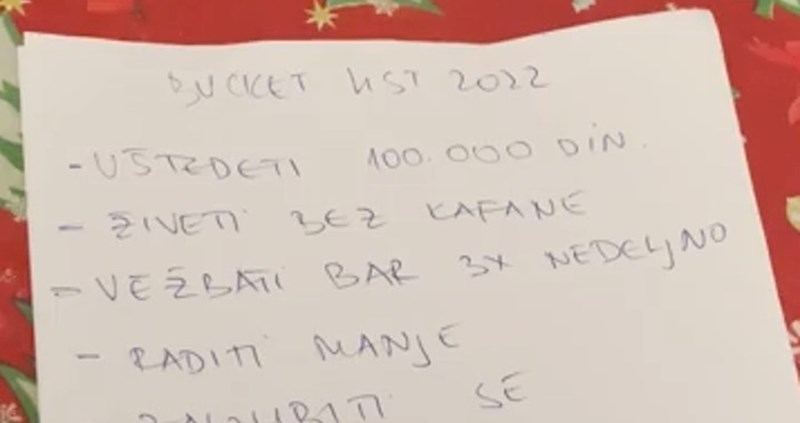 BUCKET LIST 2022
- UŠTEDETI 100.000 DIN.
- ŽIVETI BEZ KAFANE
- VEŽBATI BAR 3X NEDELJNO
- RADITI MANJE
SE